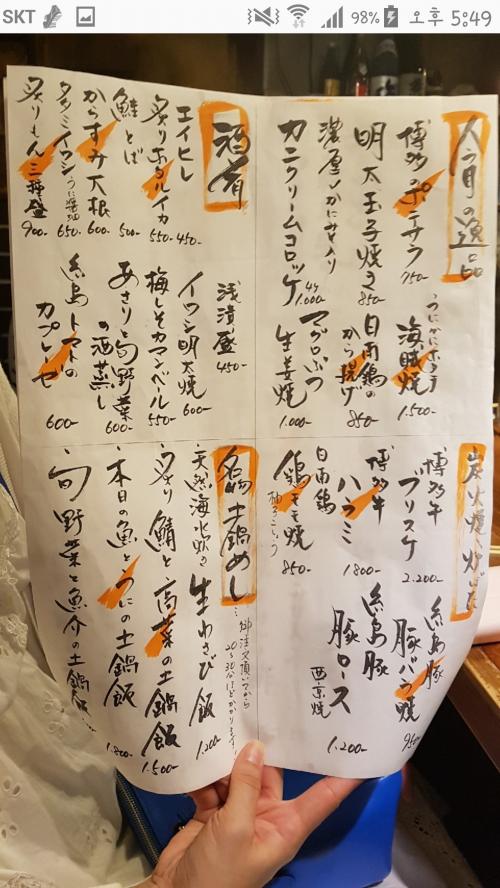 SKT 98% 오후 5:49
今月の逸品
博多ポテサラ 750-
明太玉子焼き 850-
濃厚かにみそ入り
カニクリームコロッケ 1,000-
海賊焼 1,500-
日南鶏の
から揚げ 850-
マグロぶつ
生姜焼 1,000-
酒肴
エイヒレ 450-
炙りホタルイカ 550-
鮭とば 500-
からすみ大根 600-
イワシ うに醤油 650-
炙りもん三種盛 900-
浅漬盛 450-
イワシ明太焼 600-
梅しそカマンベール 550-
あさりと旬野菜
の酒蒸し 600-
糸島トマトの
カプレーゼ 600-
炭火焼
博多牛
ブリスケ 2,200-
博多牛
ハラミ 1800-
日南鶏
鶏モモ焼 850-
柚子こしょう
糸島豚
豚バラ焼
糸島豚
豚ロース 西京焼 1,200-
名物土鍋めし
御注文頂いてから
20~30分ほどかかります
天然海水炊き 生わさび飯 1,200-
炙り鯖と高菜の土鍋飯 1,500-
本日の魚とうにの土鍋飯 1,800-
旬野菜と魚介の土鍋飯